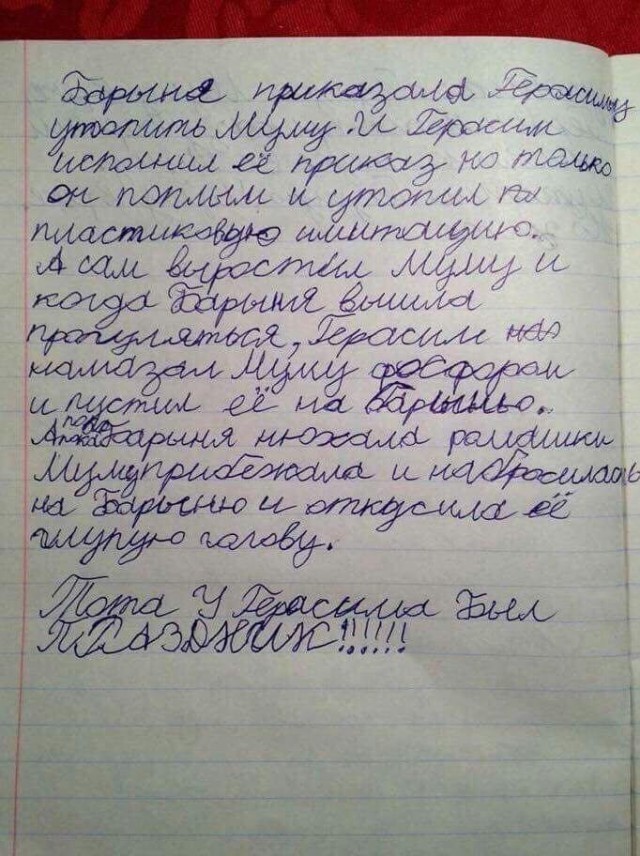 Барыня приказала Герасиму
утопить Муму. И Герасим
исполнил её приказ но только
он поплыл и утопил
пластиковую имитацию.
А сам выростил Муму и
когда Барыня вышла
прогуляться, Герасим
намазал Муму фосфаром
и пустил её на Барыню.
А пока Барыня нюхала ромашки
Муму прибежала и набросилась
на Барыню и откусила её
глупую голову.
Тота У Герасима Был
ПРАЗДНИК!!!!!!